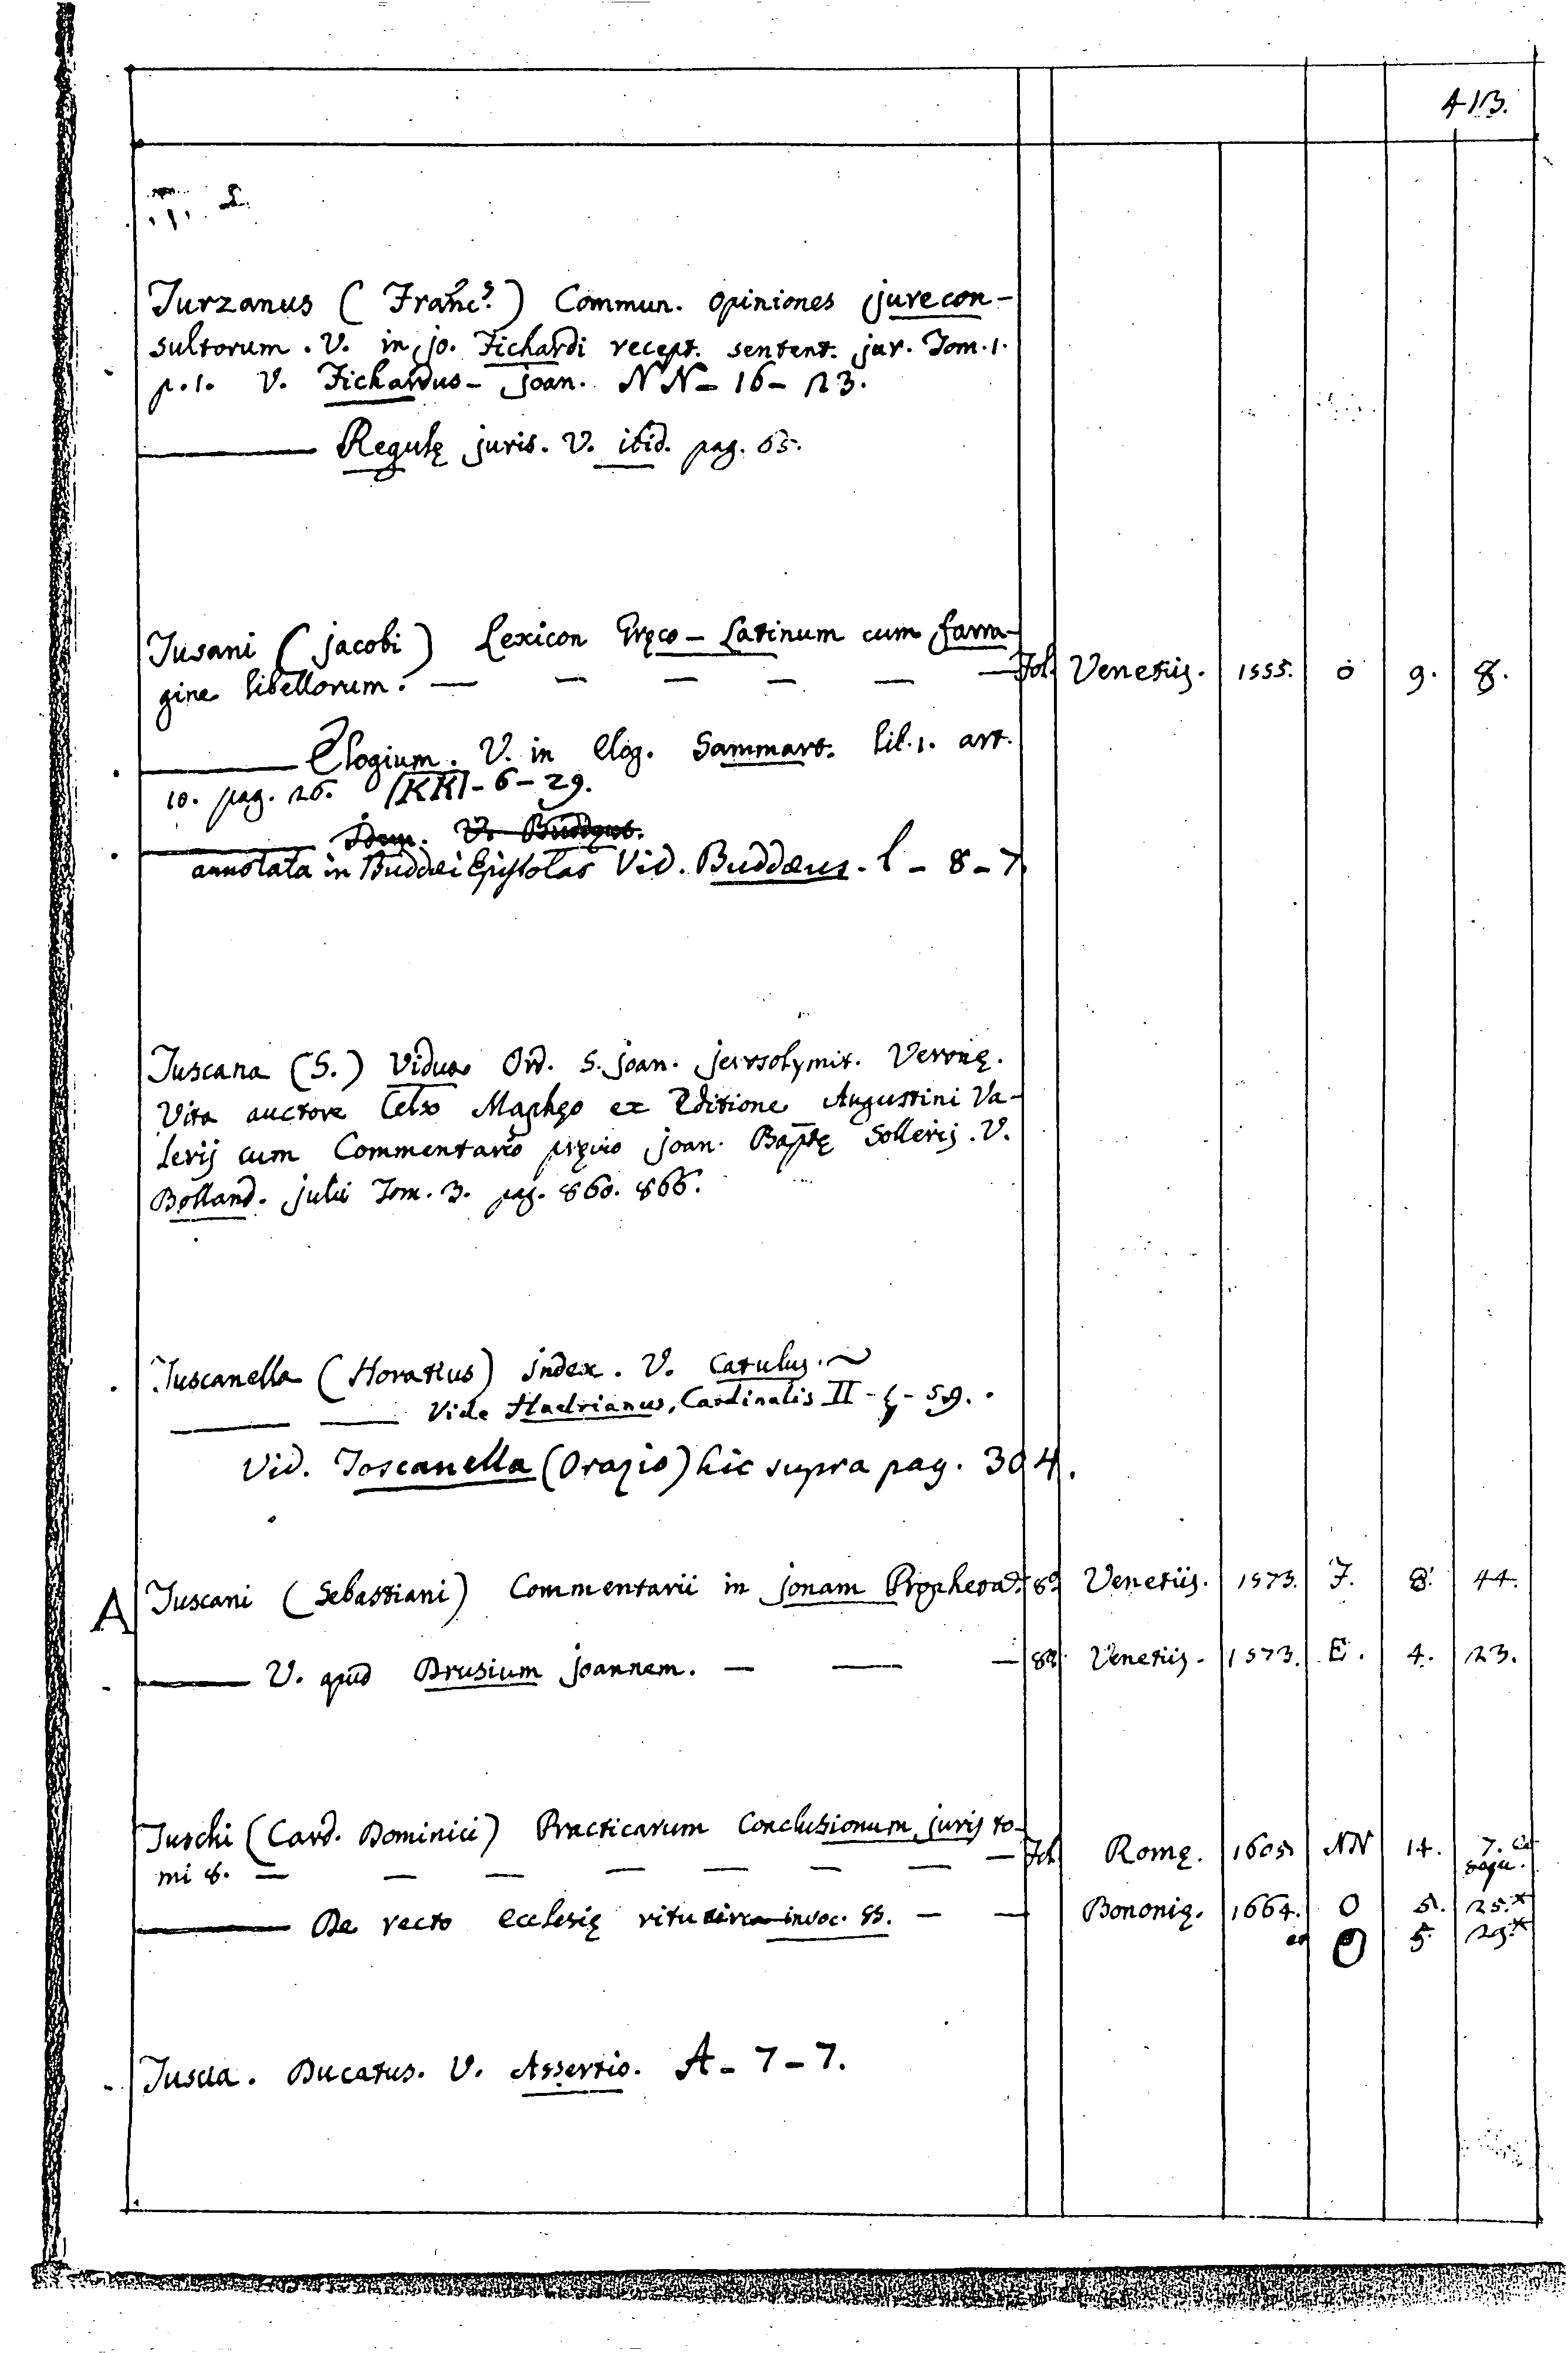 413.
Turzanus ( Franc.s ) Commun. opiniones jurecon-
sultorum . V. in jo. Fichardi recept. sentent. jur. Tom. 1.
p. 1. V. Fichardus - joan. NN - 16 - 23.
——— Regulę juris. V. ibid. pag. 65.
Tusani ( jacobi ) Lexicon Gręco - Latinum cum farra-
gine libellorum. — — — — — — Fol. Venetijs. 1555. o 9. 8.
——— Elogium. V. in Elog. Sammart. lib. 1. art.
10. pag. 26. KK - 6 - 29.
——— Idem. V. Budęus.
annotata in Buddæi Epistolas Vid. Buddæus. l - 8 - 7
Tuscana (S.) Vidua Ord. S. joan. jerosolymit. Veronę.
Vita auctore Celso Maphęo ex Editione Augustini Va-
lerij cum Commentario pręvio joan. Baptę Sollerij. V.
Bolland. julii Tom. 3. pag. 860. 866.
Tuscanella ( Horatius ) index. V. Catulus.
—— —— Vide Hadrianus, Cardinalis II - - 59.
Vid. Toscanella (Orazio) hic supra pag. 304.
A Tuscani ( Sebastiani ) Commentarii in jonam Prophetā. 8º Venetijs. 1573. F. 8. 44.
——— V. apud Drusium joannem. — — — 8º Venetijs. 1573. E. 4. 23.
Tuschi ( Card. Dominici ) Practicarum Conclusionum juris to-
mi 8. — — — — — — — — Fol. Romę. 1605. NN 14. 7. et sequ.
——— De recto ecclesię ritu circa invoc. SS. — — Bononię. 1664. O 5. 25.*
et O 5. 29.*
Tuscia. Ducatus. V. Assertio. A - 7 - 7.